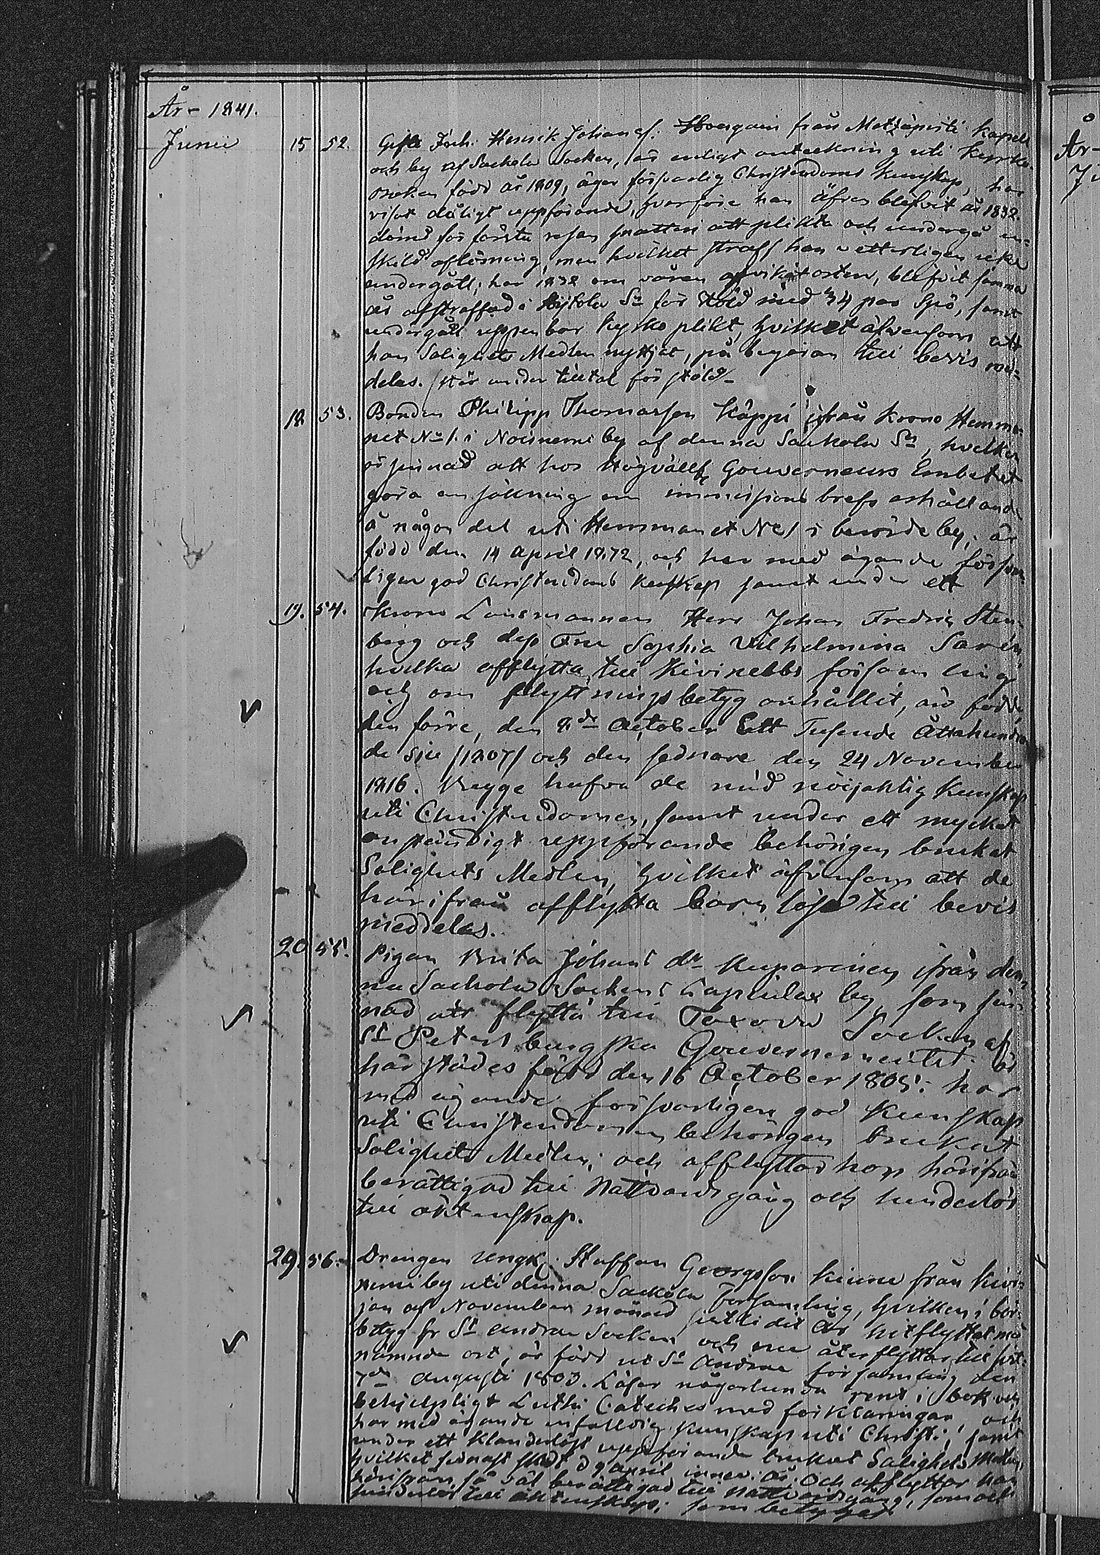 År - 1841.
Junii 15 52. Gifte Inh. Henrik Johansf. från Metsäpirti Kapell
och by af Sackola Socken, är enligt anteckning uti Kyrko
boken född år 1809, äger försvarlig Christendoms kunskap, har
visat dåligt uppförande, hvarföre han äfven blifvit år 1832
dömd för första resan att plikta och undergå en
skild aflösning, men hvilket straff han icke
undergått; har 1838 om våren blifvit samma
år afstraffad i Sn för stöld med 34 par Spö, samt
undergått uppenbar kyrkoplikt, hvilket äfvensom att
han Salighets Medlen nyttjat, på begäran till bevis med-
delas. Står under tilltal för stöld -
18 53. Bonden Philipp Thomasson Käppi ifrån Krono Hemma-
net No 1. i Noisniemi by af denna Sackola Sn, hvilken
är sinnad att hos Högvällf. Gouverneurs Embetet
göra ansökning om immissions brefs erhållande
å någor del uti Hemmanet No 1 i berörde by, är
född den 14 April 1812, och har med ägande försvar-
ligen god Christendoms kunskap samt under ett
19. 54. Krono Länsmannen Herr Johan Fredric Sten-
berg och dess Fru Sophia Vilhelmina Sarén
hvilka afflytta till Kivinebbs församling
och om flyttningsbetyg anhållit, äro födde
den förre, den 8de October Ett Tusende Åttahundra
de sju /1807/ och den sednare den 24 November
1816. Begge hafva de med nöjaktig kunskap
uti Christendomen, samt under ett mycket
anständigt uppförande behörigen brukat
Salighets Medlen, hvilket äfvensom att de
härifrån afflytta barnlöse till bevis
meddelas.
20 55. Pigan Brita Johans dr Kuparinen ifrån den-
na Sackola Sockens by, som är sin-
nad att flytta till Toxova Socken af
St Petersburgska Gouvernementet är
härstädes född den 16 October 1805: har
med ägande försvarligen god kunskap
uti Christendomen behörigen brukat
Salighets Medlen; och afflyttar hon härifrån
berättigad till Nattvardsgång och hinderlös
till äktenskap.
29. 56. Drengen ungk. Staffan Georgsson Kinnu från Kivi-
niemi by uti denna Sackola Församling, hvilken i bör-
jan af November månad hitflyttat med
betyg fr St Andrae Socken och nu återflyttar till sist
nämnde ort, är född uti St Andrae församling den
7de Augusti 1803. Läser någorlunda rent i bok och
behjelpligt Luthi Cateches med förklaringar, och
har med ägande enfaldig kunskap uti Christi, samt
under ett klanderlöst uppförande brukat Salighets Medlen,
hvilket sednast skedt d 9 April innev. år. Och afflyttar han
härifrån så väl berättigad till nattvardsgång, som ock
hinderlös till äktenskap; som betygar